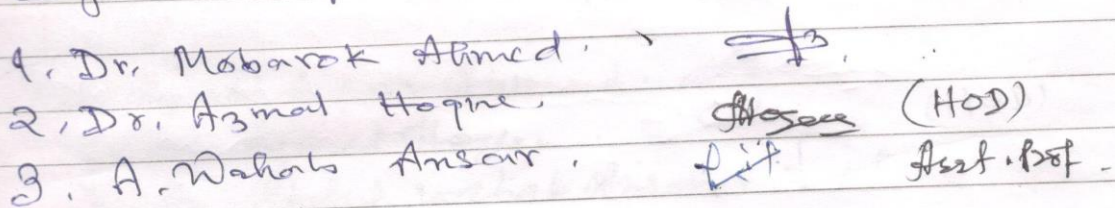 1. Dr. Mobarok Ahmed.
2, Dr. Azmal Hoqine. (HOD)
3. A. Wahab Ansar. Asst. Prof.